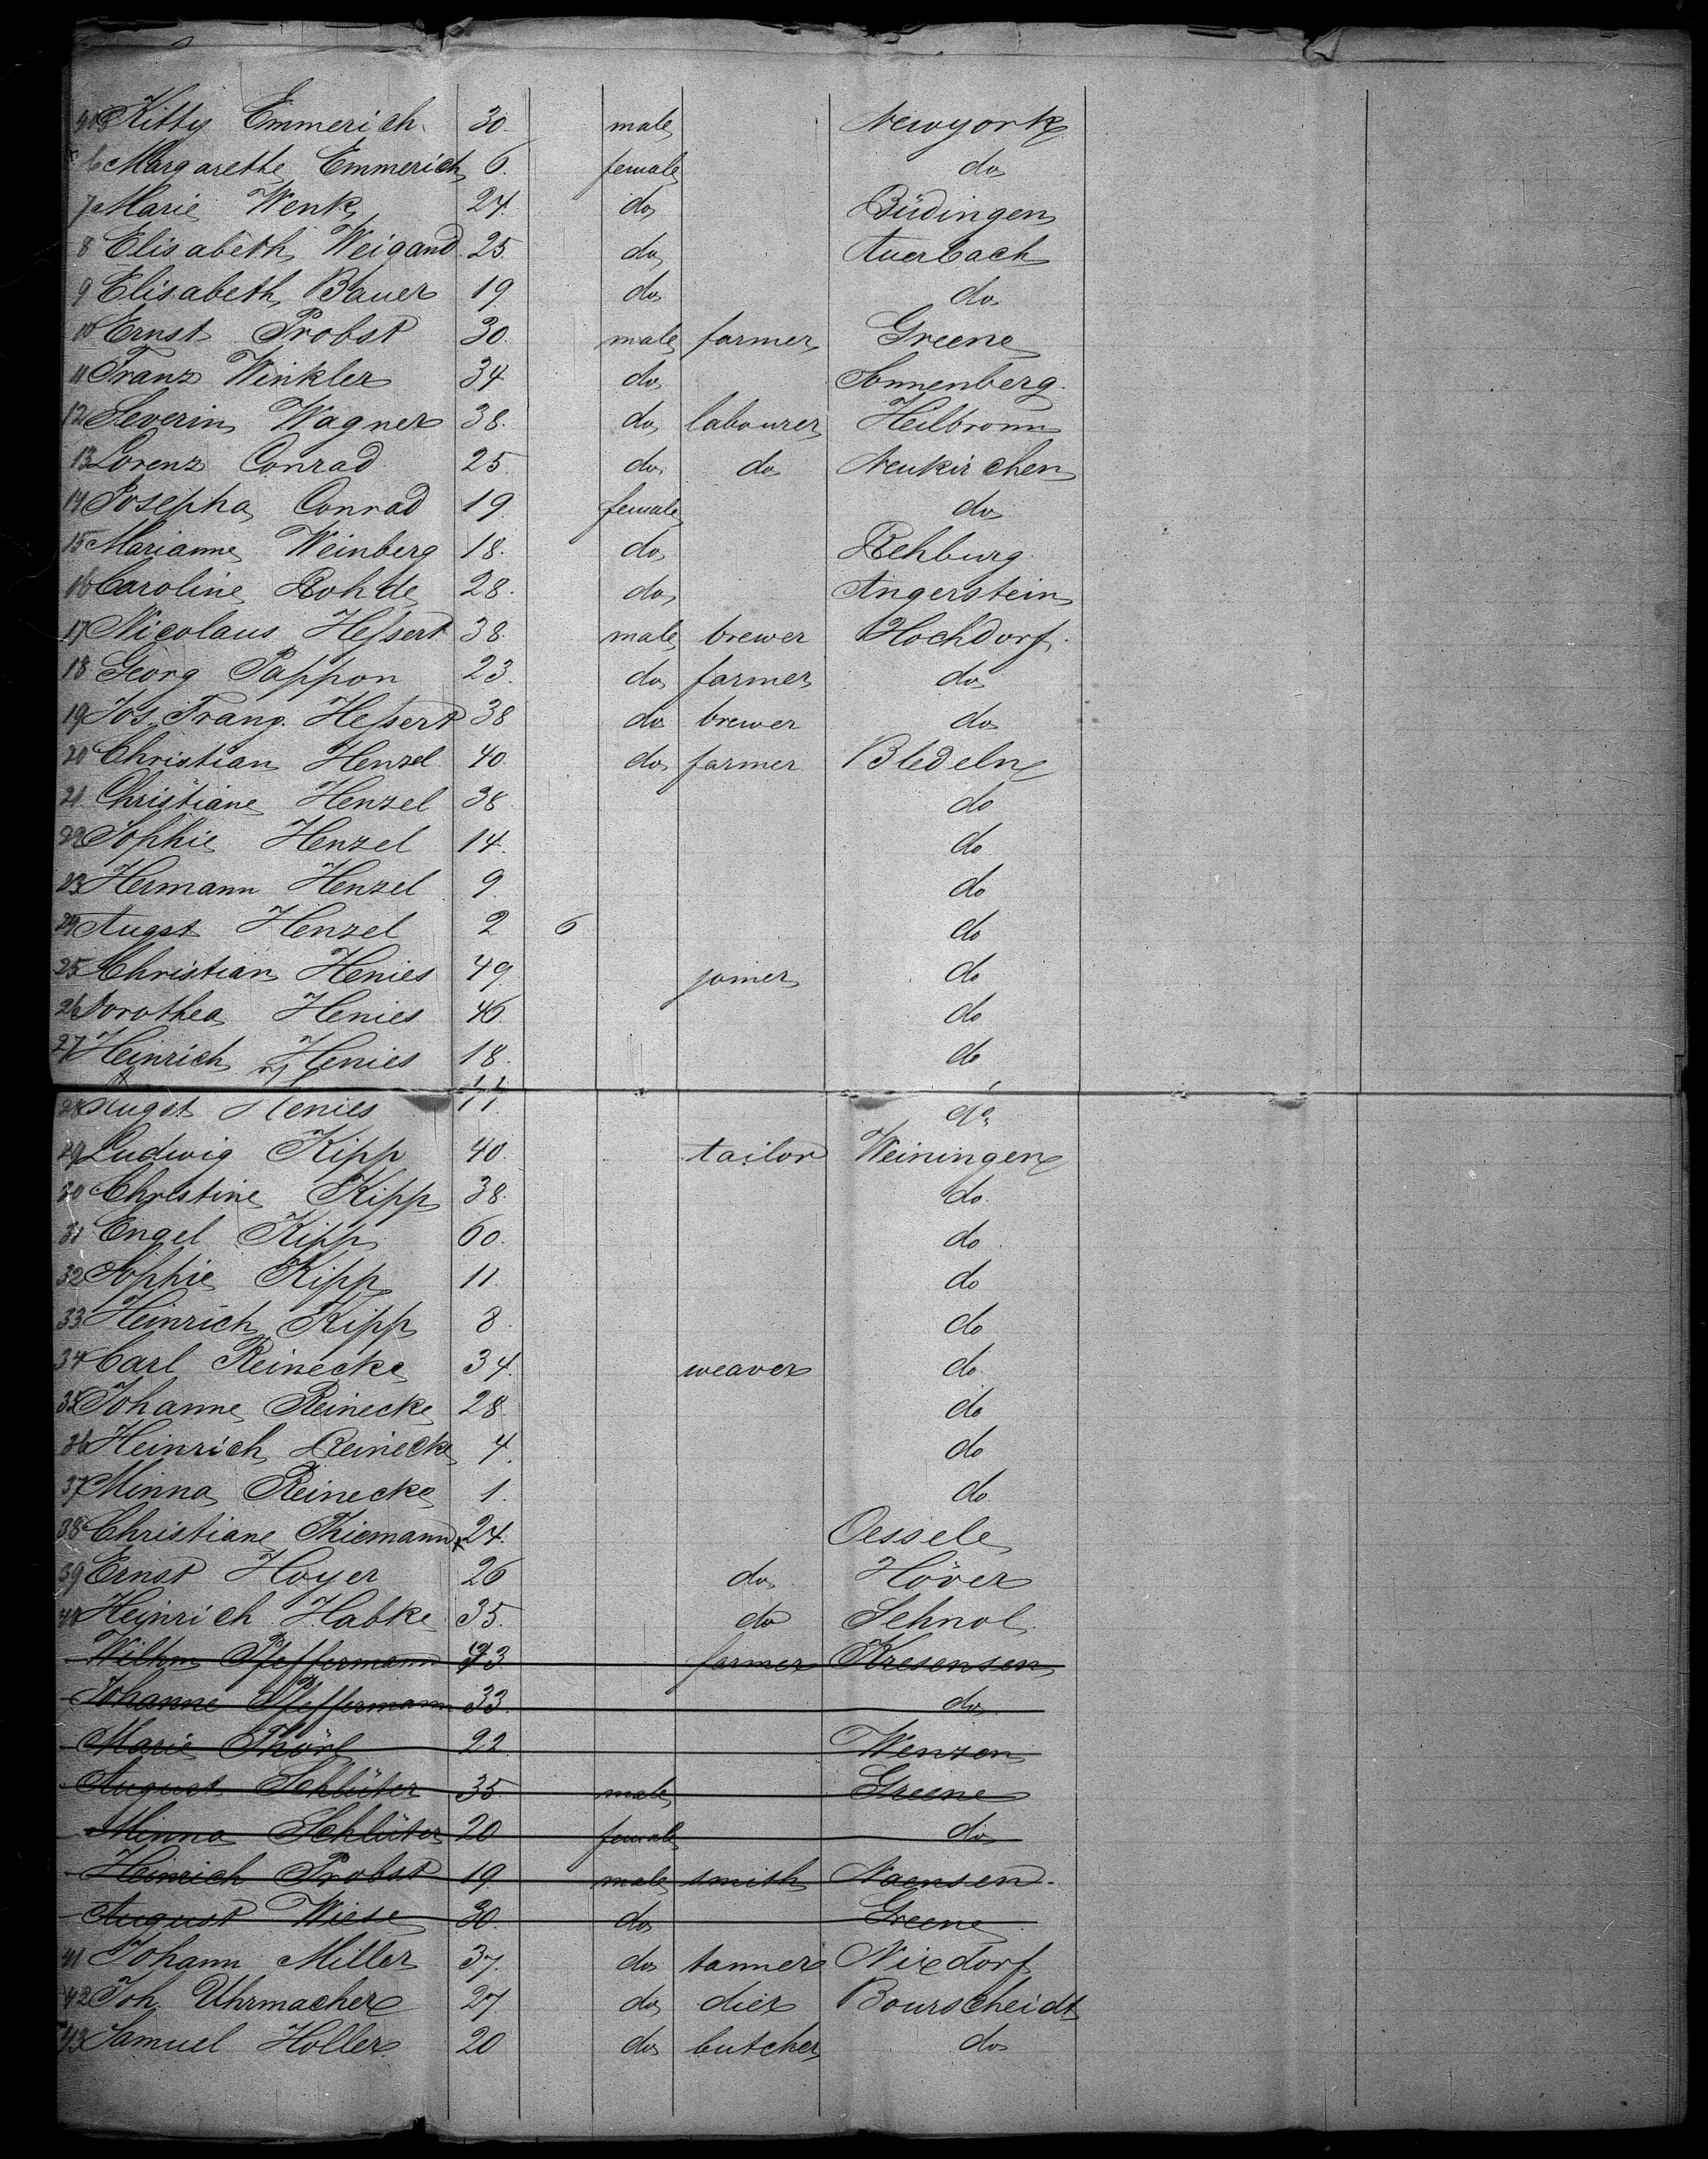 Kitty Emmerich 30. male Newyork
6 Margarethe Emmerich 6. female do
7 Marie Wenk 24. do Büdingen
8 Elisabeth Weigand 25. do Auerbach
9 Elisabeth Bauer 19 do do
10 Ernst Probst 30. male farmer Greene
11 Franz Winkler 34 do Sonnenberg.
12 Severin Wagner 38. do labourer Heilbronn
13 Lorenz Conrad 25. do do Neukirchen
14 Josepha Conrad 19. female do
15 Marianne Weinberg 18. do Rehburg.
16 Caroline Rohde 28. do Angerstein
17 Nicolaus Heßert 38. male brewer Hochdorf.
18 Georg Pappon 23. do farmer do
19 Jos. Franz. Heßert 38 do brewer do
20 Christian Henzel 40. do farmer Bledeln
21 Christiane Henzel 38 do
22 Sophie Henzel 14. do
23 Hermann Henzel 9. do
24 Augst Henzel 2 6 do
25 Christian Henies 49. joiner do
26 Dorothea Henies 46. do
27 Heinrich Henies 18. do
28 Augst Henies 11. do
29 Ludwig Kipp 40. tailor Weiningen
30 Christine Kipp 38. do.
31 Engel Kipp 60. do.
32 Sophie Kipp 11. do
33 Heinrich Kipp 8. do
34 Carl Reinecke 34. weaver do.
35 Johanne Reinecke 28. do
36 Heinrich Reinecke 4. do
37 Minna Reinecke 1. do.
38 Christiane Thiemann 24. Oessele
39 Ernst Hoyer 26 do Höver
40 Heinrich Habke 35. do Sehnol.
Wilhm Pfeffermann farmer Kresensen
Johanne Pfeffermann 33. do.
Marie Thörl 22. Wenzen
August Schlüter 35. male Greene
Minna Schlüter 20 female do
Heinrich Probst 19. male smith Naensen.
August Wiese 30. do Greene.
41 Johann Miller 37. do tanner Nixdorf
42 Joh. Uhrmacher 27 do dier Bourscheidt
43 Samuel Holler 20 do butcher do